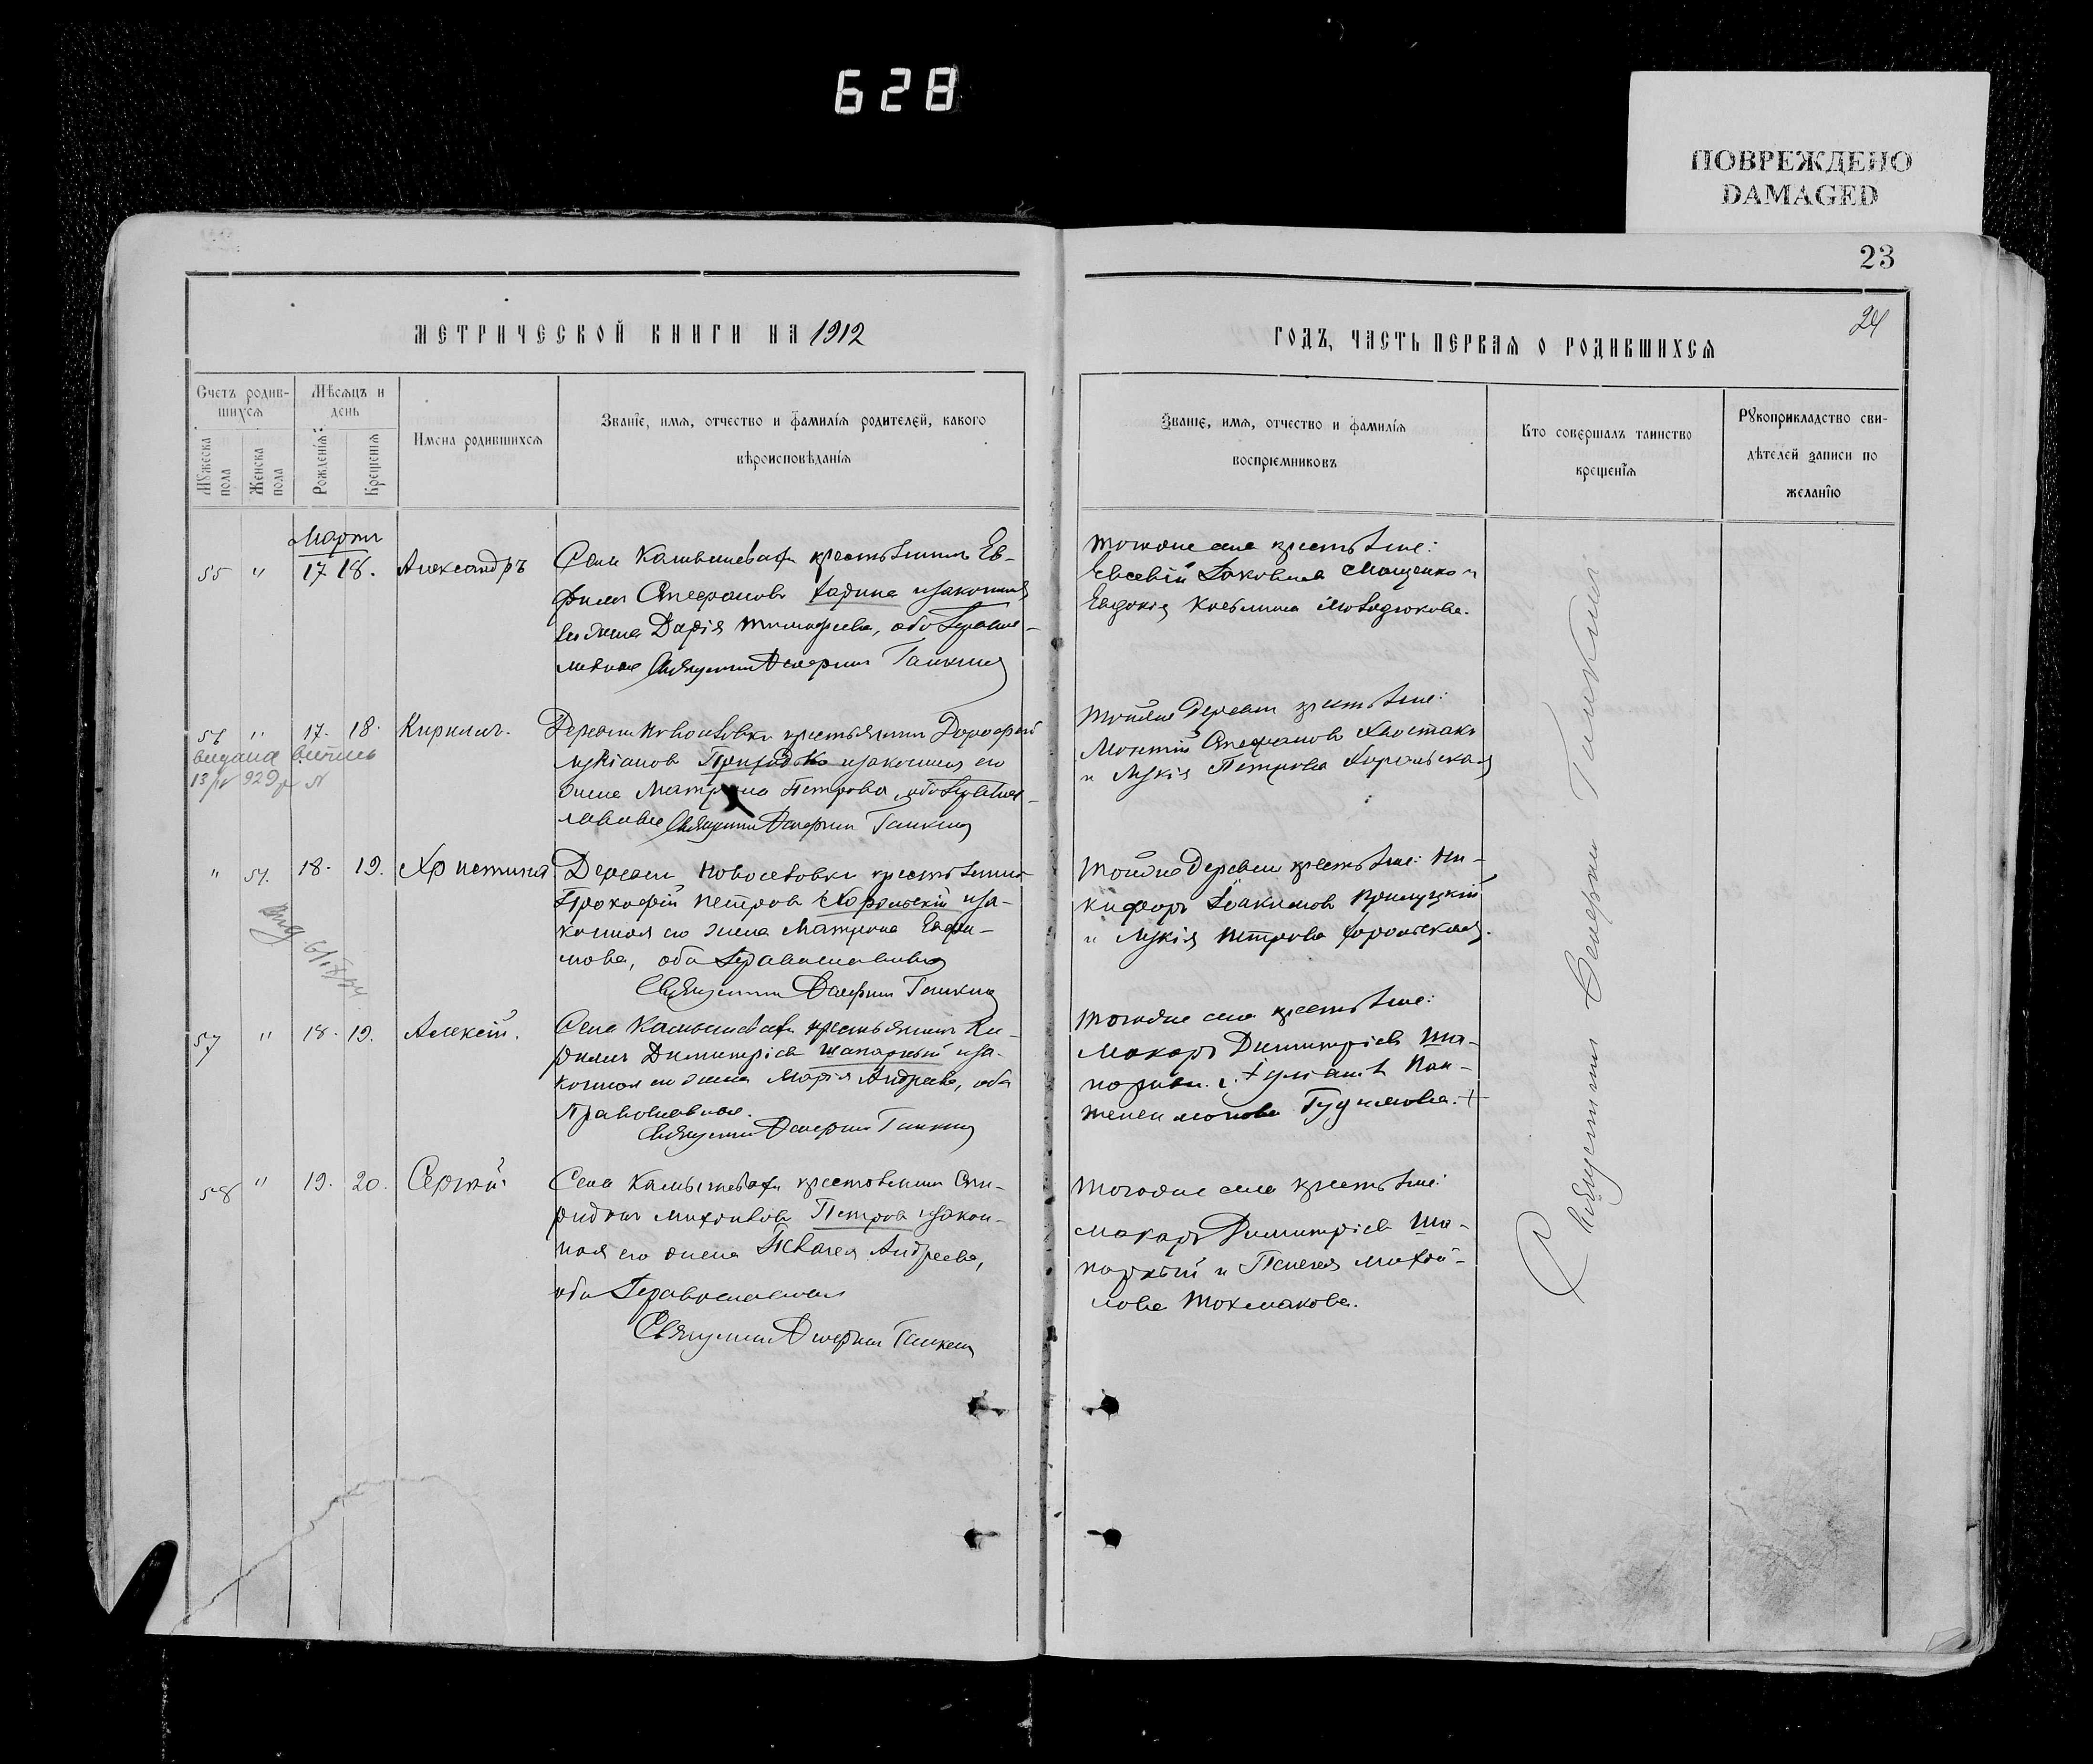 628
ПОВРЕЖДЕНО
DAMAGED
23
24
МЕТРИЧЕСКОЙ КНИГИ НА 1912
ГОДЪ, ЧАСТЬ ПЕРВАЯ О РОДИВШИХСЯ
Счетъ родив-
шихся
Мужеска
пола
Женска
пола
Мѣсяцъ и
день
Рожденія
Крещенія
Имена родившихся
Званіе, имя, отчество и фамилія родителей, какого
вѣроисповѣданія
Званіе, имя, отчество и фамилія
воспріемниковъ
Кто совершалъ таинство
крещенія
Рукоприкладство сви-
дѣтелей записи по
желанію
Мартъ
55 " 17 18. Александръ
Села Камышевахи крестьянинъ Ев-
Стефановъ и законная
его жена Дарія Тимофеева, оба право-
славные Священникъ Валеріанъ Галкинъ
Тогоже села крестьяне:
Евсевій Іаковлевъ Мащенко и
Евдокія
56 " 17. 18. Кириллъ.
видана випись
13/IV 929 р
Деревни Новоселовки крестьянинъ Дорофей
Лукіановъ Приходько и законная его
жена Матрона Петрова, оба право-
славные Священникъ Валеріанъ Галкинъ
Тойже деревни крестьяне:
Стефановъ Хвостакъ
и Лукія Петрова Хорольская
" 51. 18. 19. Христина
Деревни Новоселовки крестьянинъ
Прокофій Петровъ Хорольскій и за-
конная его жена Матрона Евфи-
мова, оба православные
Священникъ Валеріанъ Галкинъ
Тойже деревни крестьяне: Ни-
кифоръ Іоакимовъ Прилуцкій
и Лукія Петрова Хорольская.
57 " 18. 19. Алексій.
Села Камышевахи крестьянинъ Ки-
риллъ Димитріевъ Шапарный и за-
конная его жена Марія Андреева, оба
Православные.
Священникъ Валеріанъ Галкинъ
Тогоже села крестьяне:
Макаръ Димитріевъ Ша-
парный и Пан-
телеимонова Гудимова.
58 " 19. 20. Сергій.
Села Камышевахи крестьянинъ Спи-
ридонъ Михаиловъ Петровъ и закон-
ная его жена Пелагея Андреева,
оба Православные
Священникъ Валеріанъ Галкинъ
Тогоже села крестьяне:
Макаръ Димитріевъ Ша-
парный и Пелагея Михай-
лова Токмакова.
Священникъ Валеріанъ Галкинъ